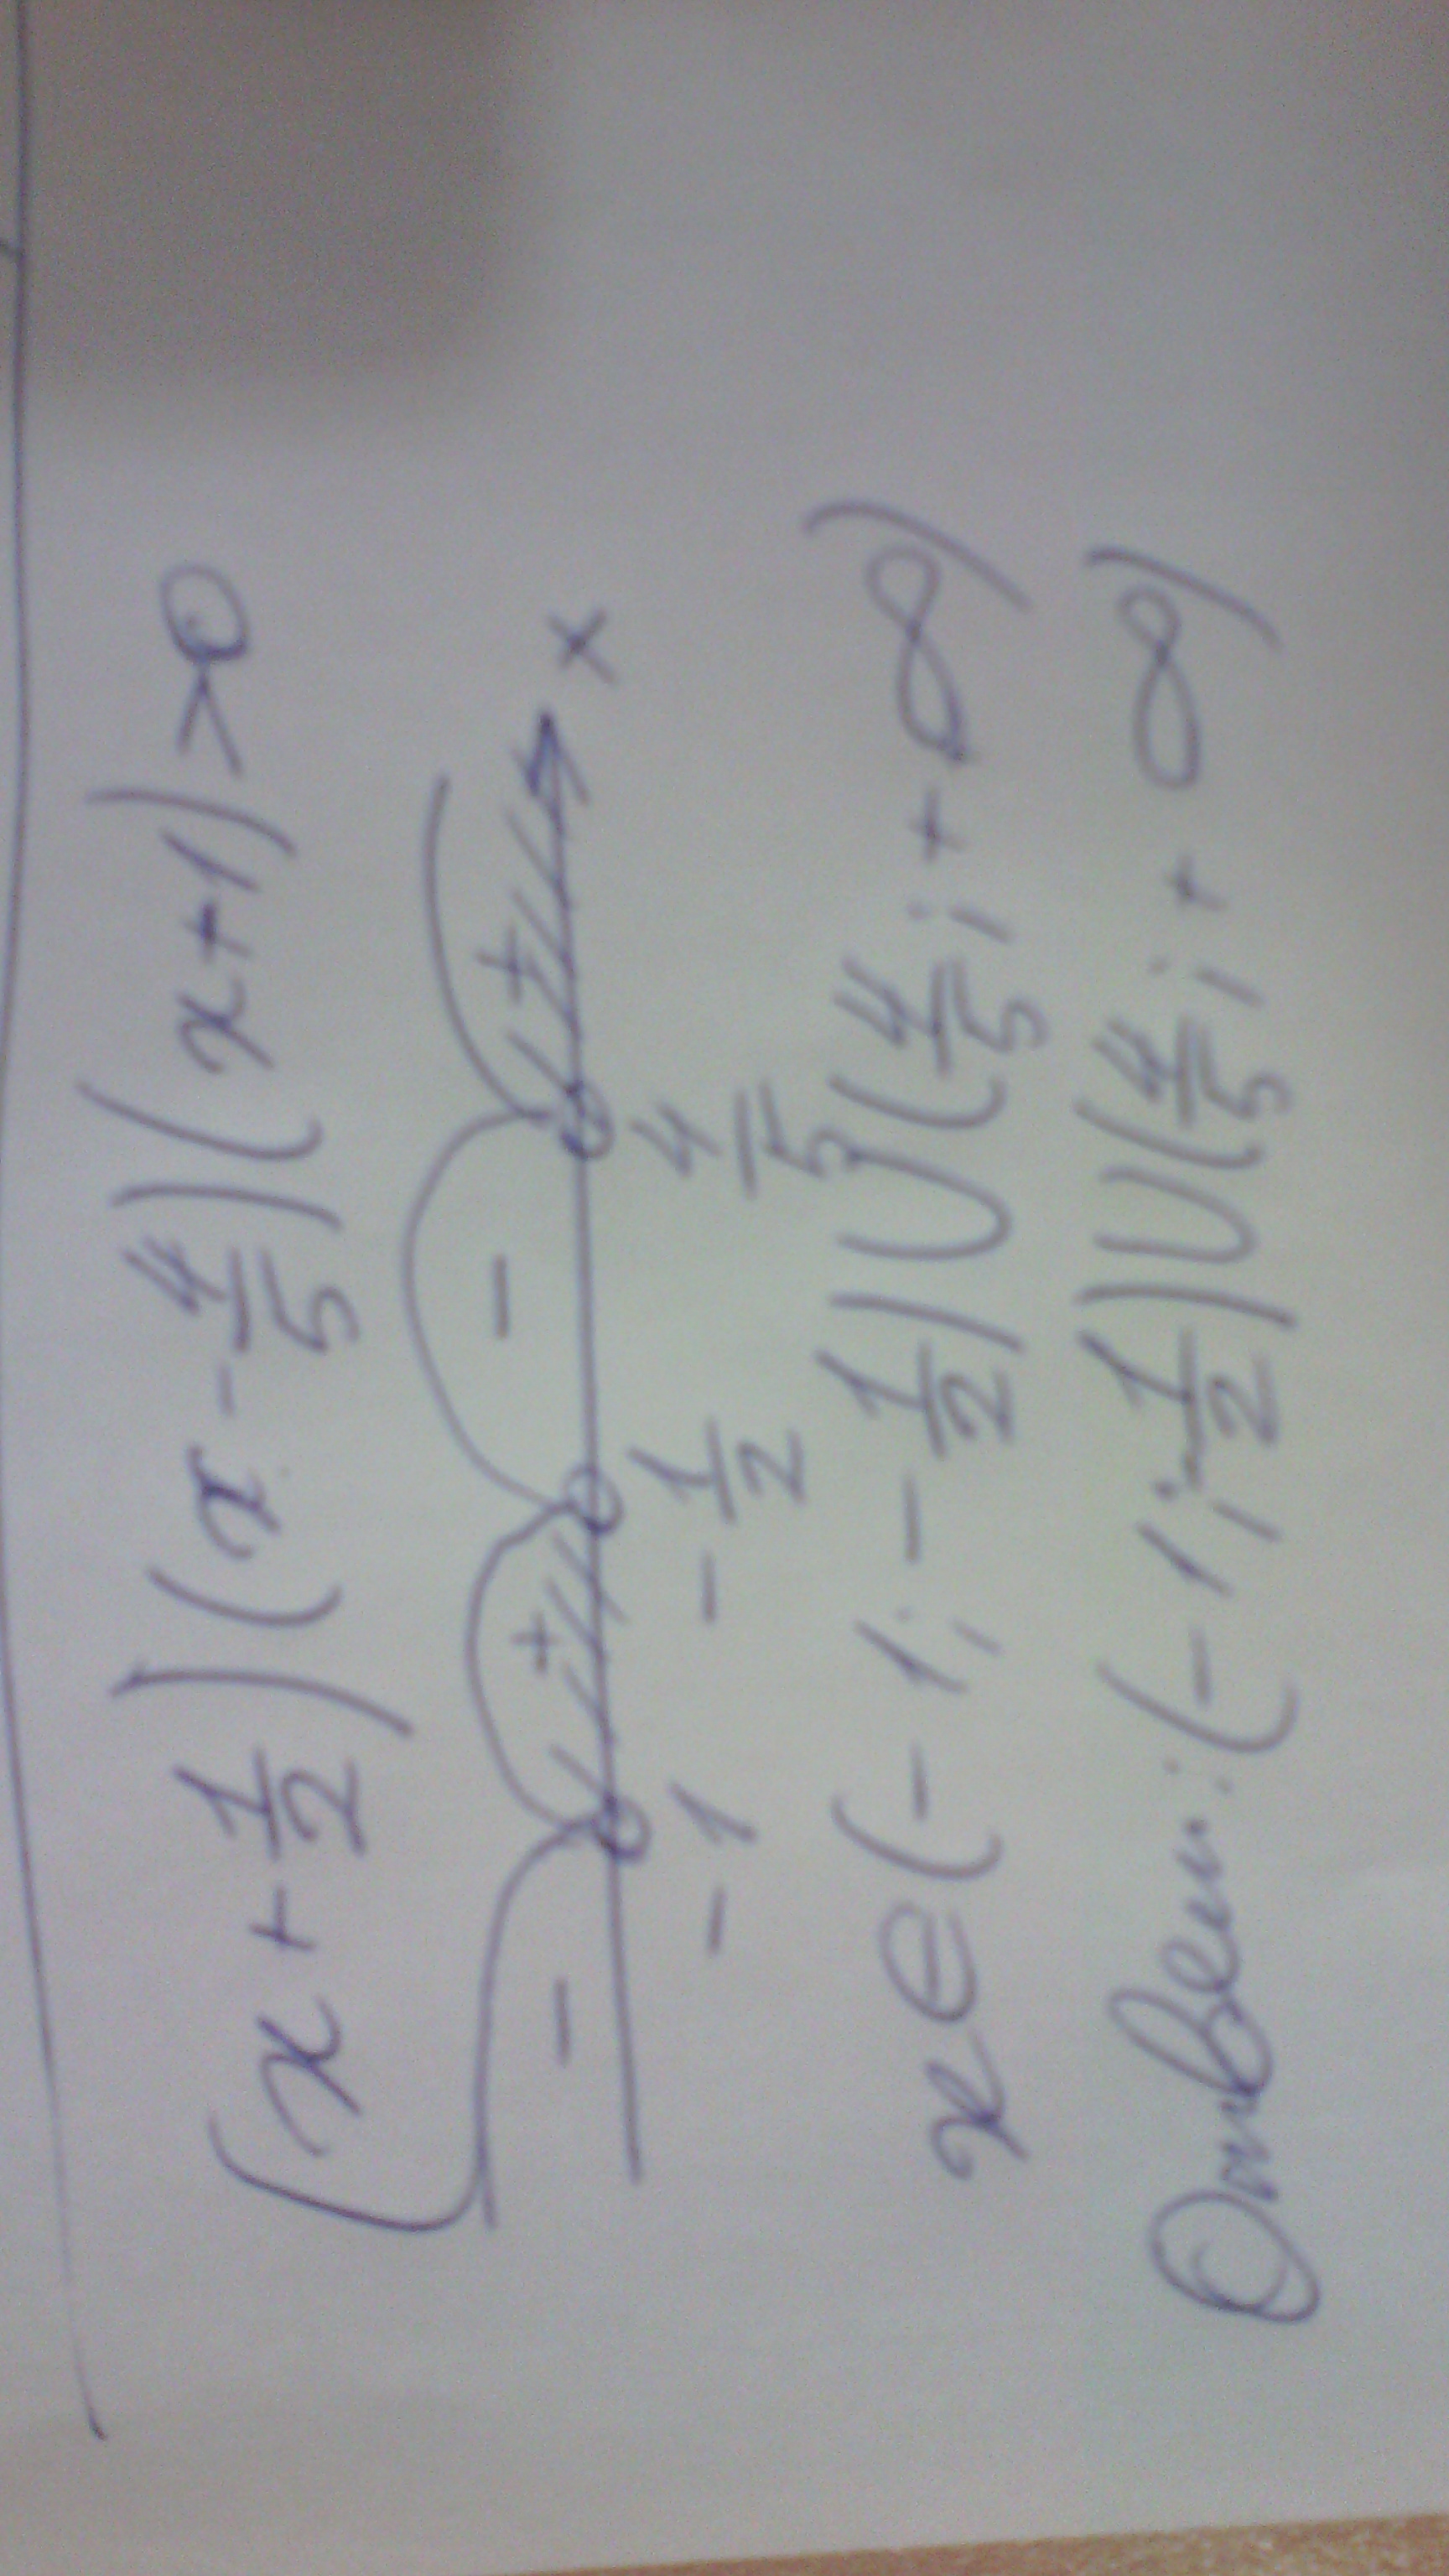 (x + 1/2)(x - 4/5)(x+1)>0
- + - + x
-1 -1/2 4/5
x∈(-1; -1/2)∪(4/5; +∞)
Ответ: (-1; -1/2)∪(4/5; +∞)